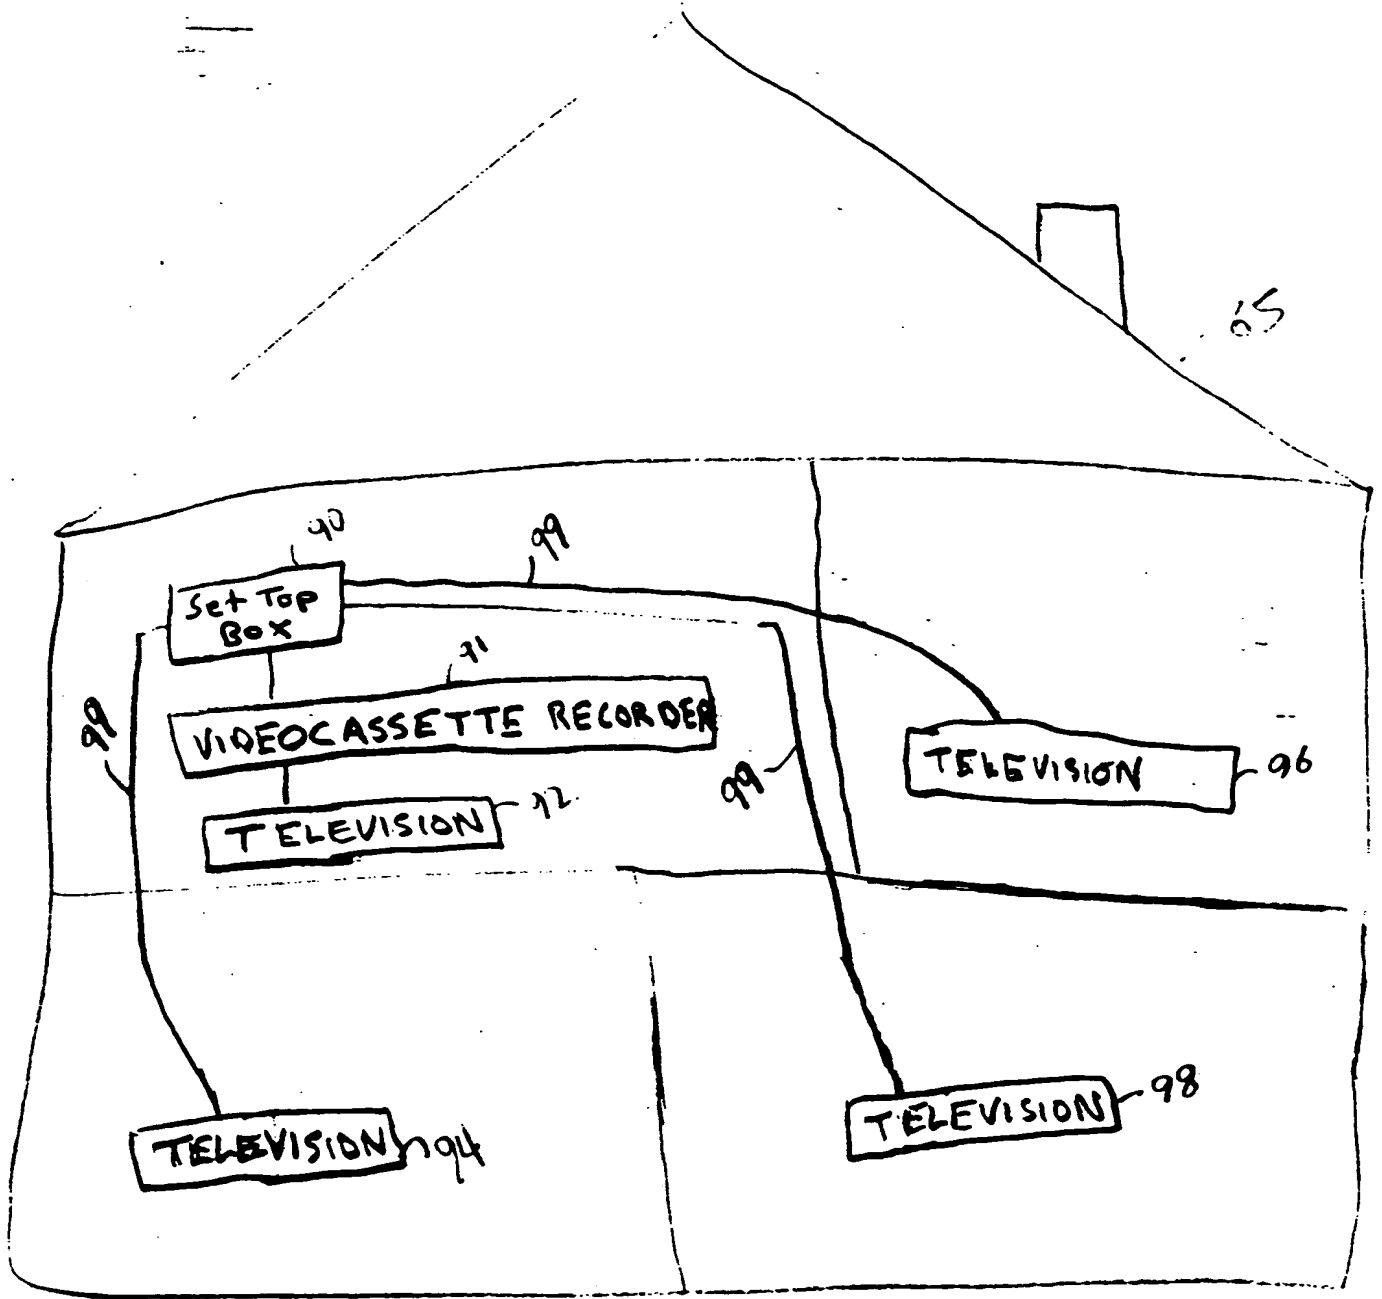 65
90
99
Set Top
BOX
91
99
VIDEOCASSETTE RECORDER
99
TELEVISION
96
TELEVISION
92
TELEVISION
98
TELEVISION
94